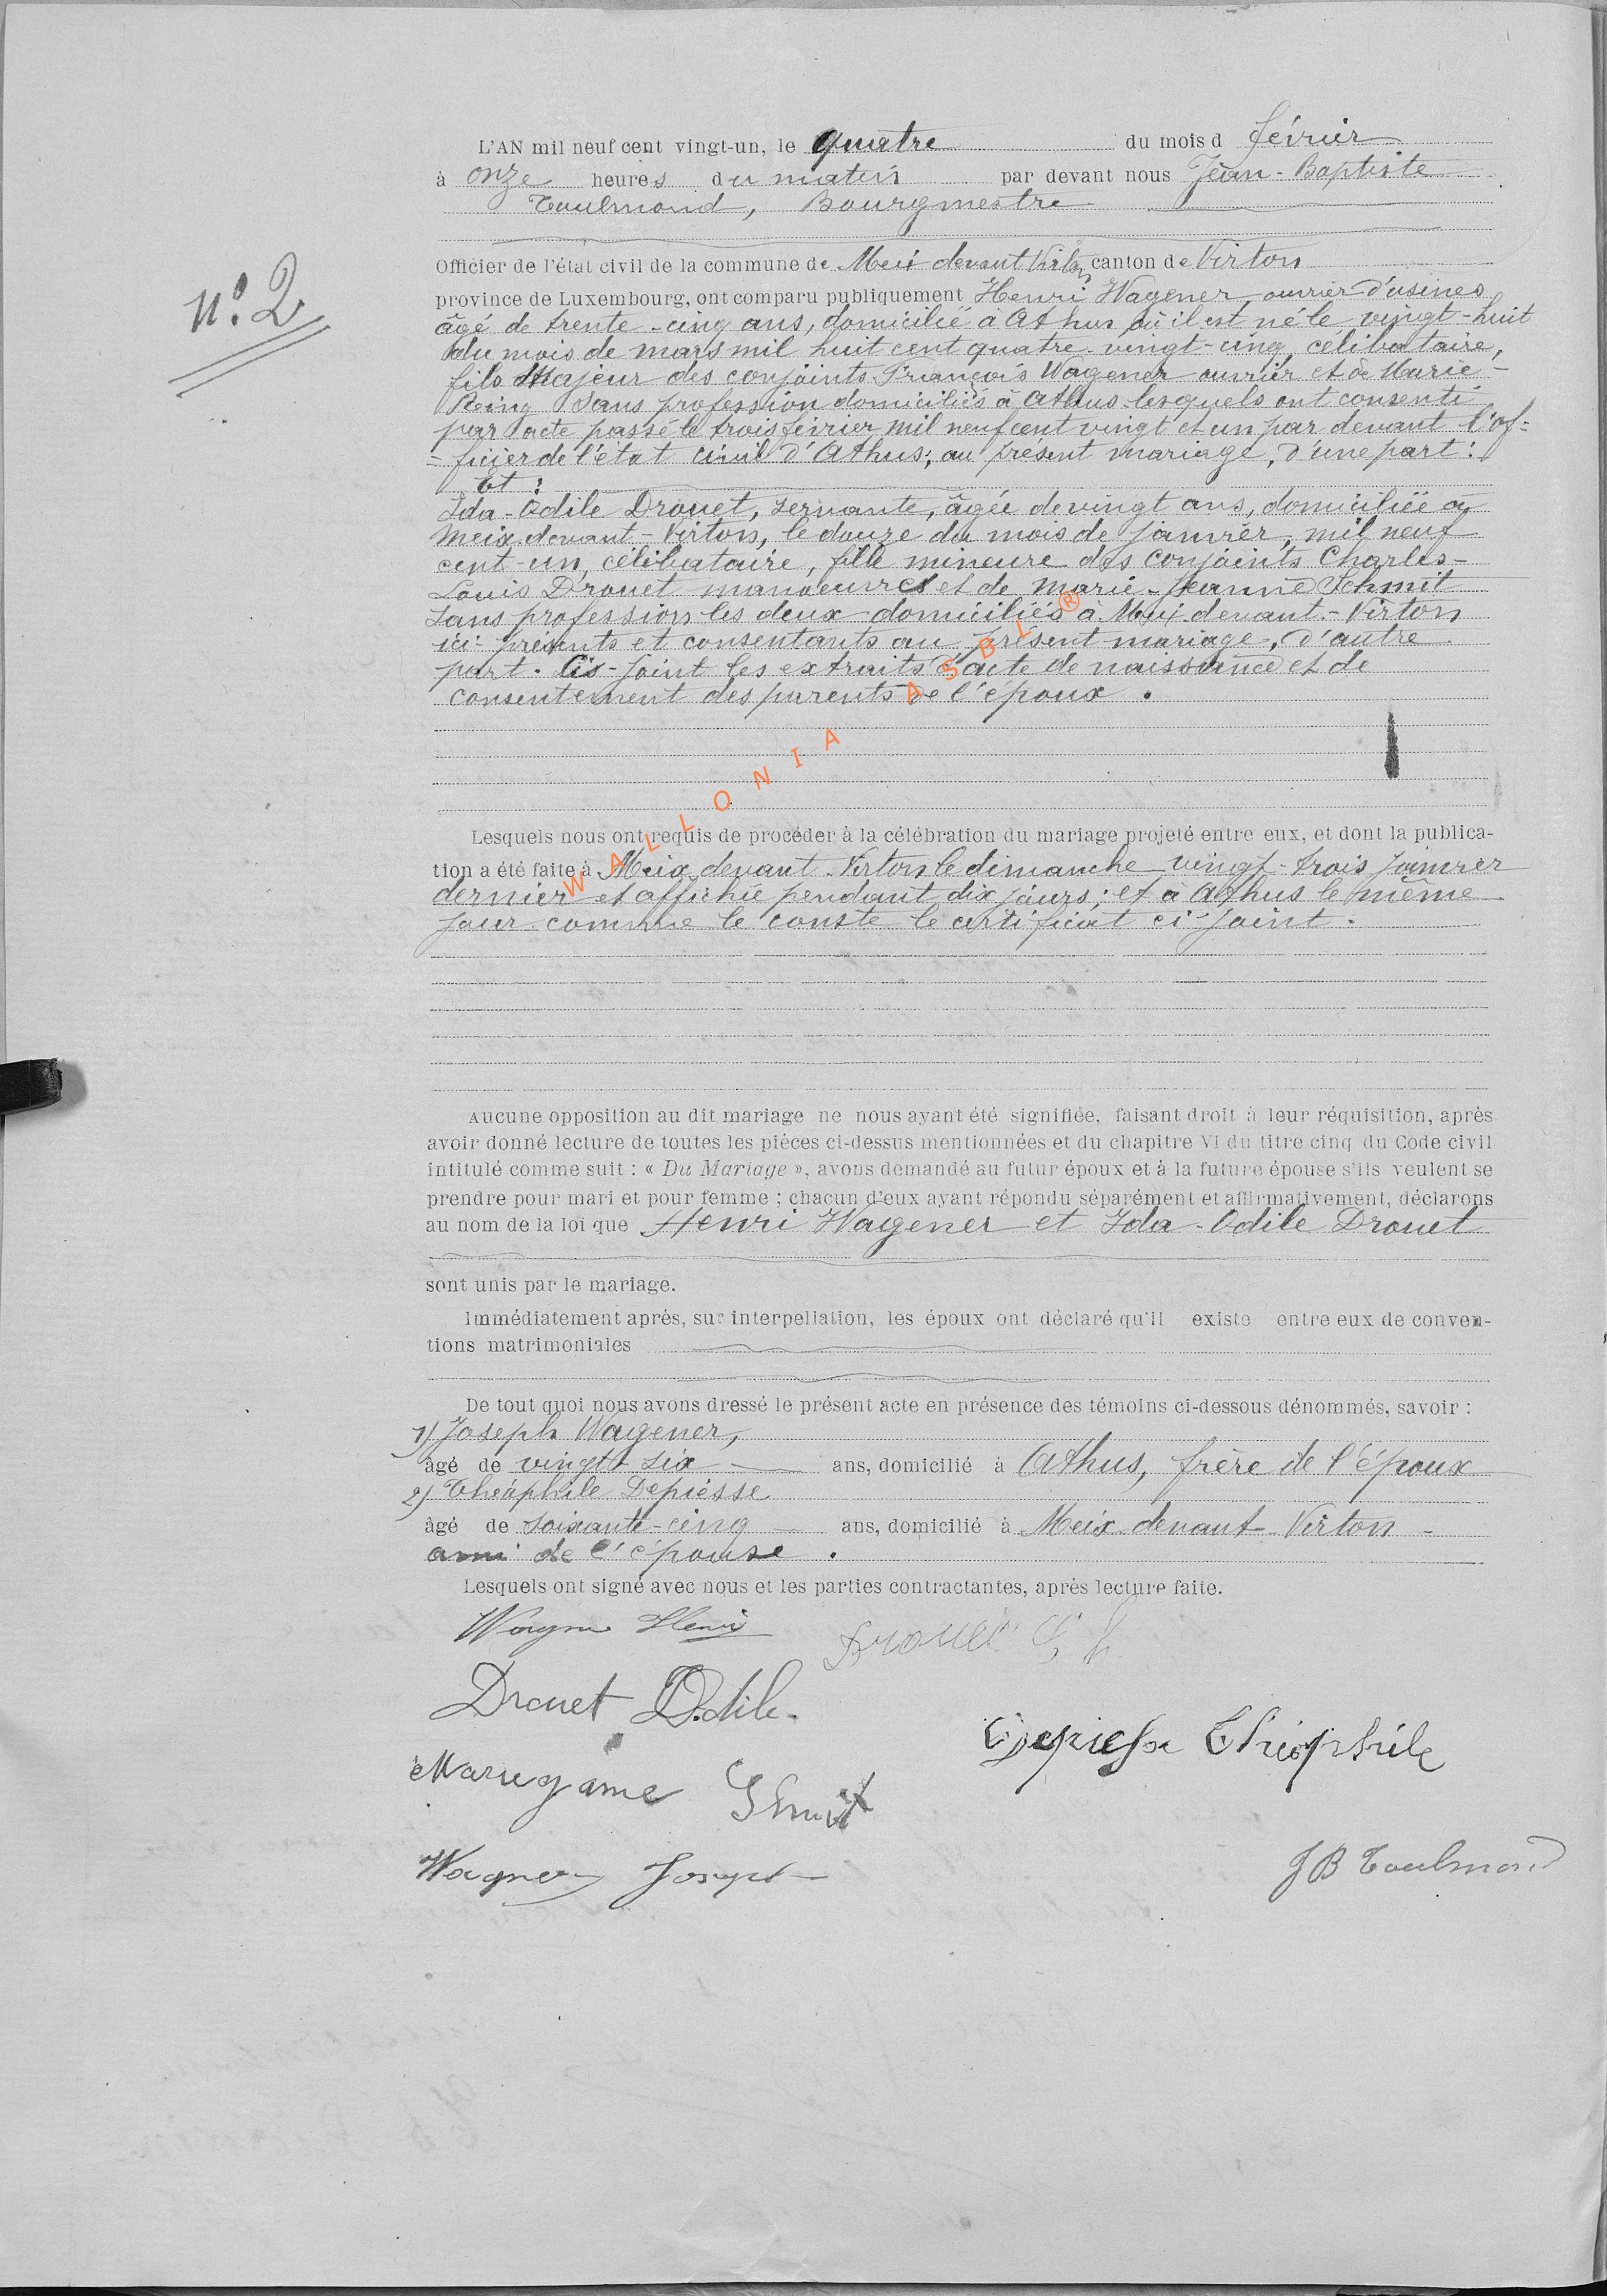 L'AN mil neuf cent vingt-un, le quatre du mois d février
à onze heures du matin par devant nous Jean-Baptiste
Toulmond, Bourgmestre
Officier de l'état civil de la commune de Meix devant Virton canton de Virton
province de Luxembourg, ont comparu publiquement Henri Wagener, ouvrier d'usines
n° 2
âgé de trente-cinq ans, domicilié à Athus où il est né le vingt-huit
du mois de mars mil huit cent quatre-vingt-cinq, célibataire,
fils Majeur des conjoints François Wagener ouvrier et de Marie-
Reing sans profession domiciliés à Athus lesquels ont consenti
par acte passé le trois février mil neuf cent vingt et un par devant l'of-
ficier de l'état civil d'Athus, au présent mariage, d'une part :
Et :
Ida-Odile Drouet, servante, âgée de vingt ans, domiciliée à
Meix-devant-Virton, le douze du mois de janvier, mil neuf
cent-un, célibataire, fille mineure des conjoints Charles-
Louis Drouet manoeuvre et de Marie-Jeanne Schmit
sans profession les deux domiciliés à Meix-devant-Virton
ici présents et consentants au présent mariage, d'autre
part. Ci-joint les extraits d'acte de naissance et de
consentement des parents de l'époux.
WALLONIA ASBL ®
Lesquels nous ont requis de procéder à la célébration du mariage projeté entre eux, et dont la publica-
tion a été faite à Meix devant-Virton le dimanche vingt-trois janvier
dernier et affichée pendant dix jours ; et à Athus le même
jour comme le conste le certificat ci-joint.
Aucune opposition au dit mariage ne nous ayant été signifiée, faisant droit à leur réquisition, après
avoir donné lecture de toutes les pièces ci-dessus mentionnées et du chapitre VI du titre cinq du Code civil
intitulé comme suit : « Du Mariage », avons demandé au futur époux et à la future épouse s'ils veulent se
prendre pour mari et pour femme ; chacun d'eux ayant répondu séparément et affirmativement, déclarons
au nom de la loi que Henri Wagener et Ida-Odile Drouet
sont unis par le mariage.
Immédiatement après, sur interpellation, les époux ont déclaré qu'il existe entre eux de conven-
tions matrimoniales
De tout quoi nous avons dressé le présent acte en présence des témoins ci-dessous dénommés, savoir :
1) Joseph Wagener,
âgé de vingt-six ans, domicilié à Athus, frère de l'époux
2) Théophile Depiesse
âgé de soixante-cinq ans, domicilié à Meix-devant-Virton -
ami de l'épouse.
Lesquels ont signé avec nous et les parties contractantes, après lecture faite.
Wagner Henri Drouet C L
Drouet Odile
Depiesse Théophile
Marie jane Schmit
Wagner Joseph
JB Toulmond